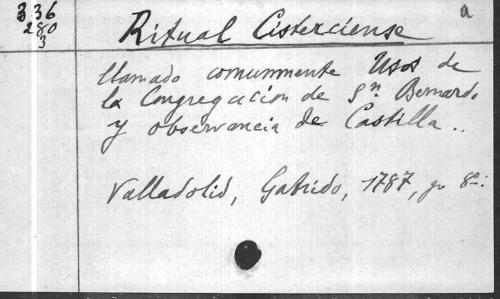 336
280
3
a
Ritual Cisterciense
llamado comunmente Usos de
la Congregación de Sn. Bernardo
y observancia de Castilla..
Valladolid, 1787, 8º: